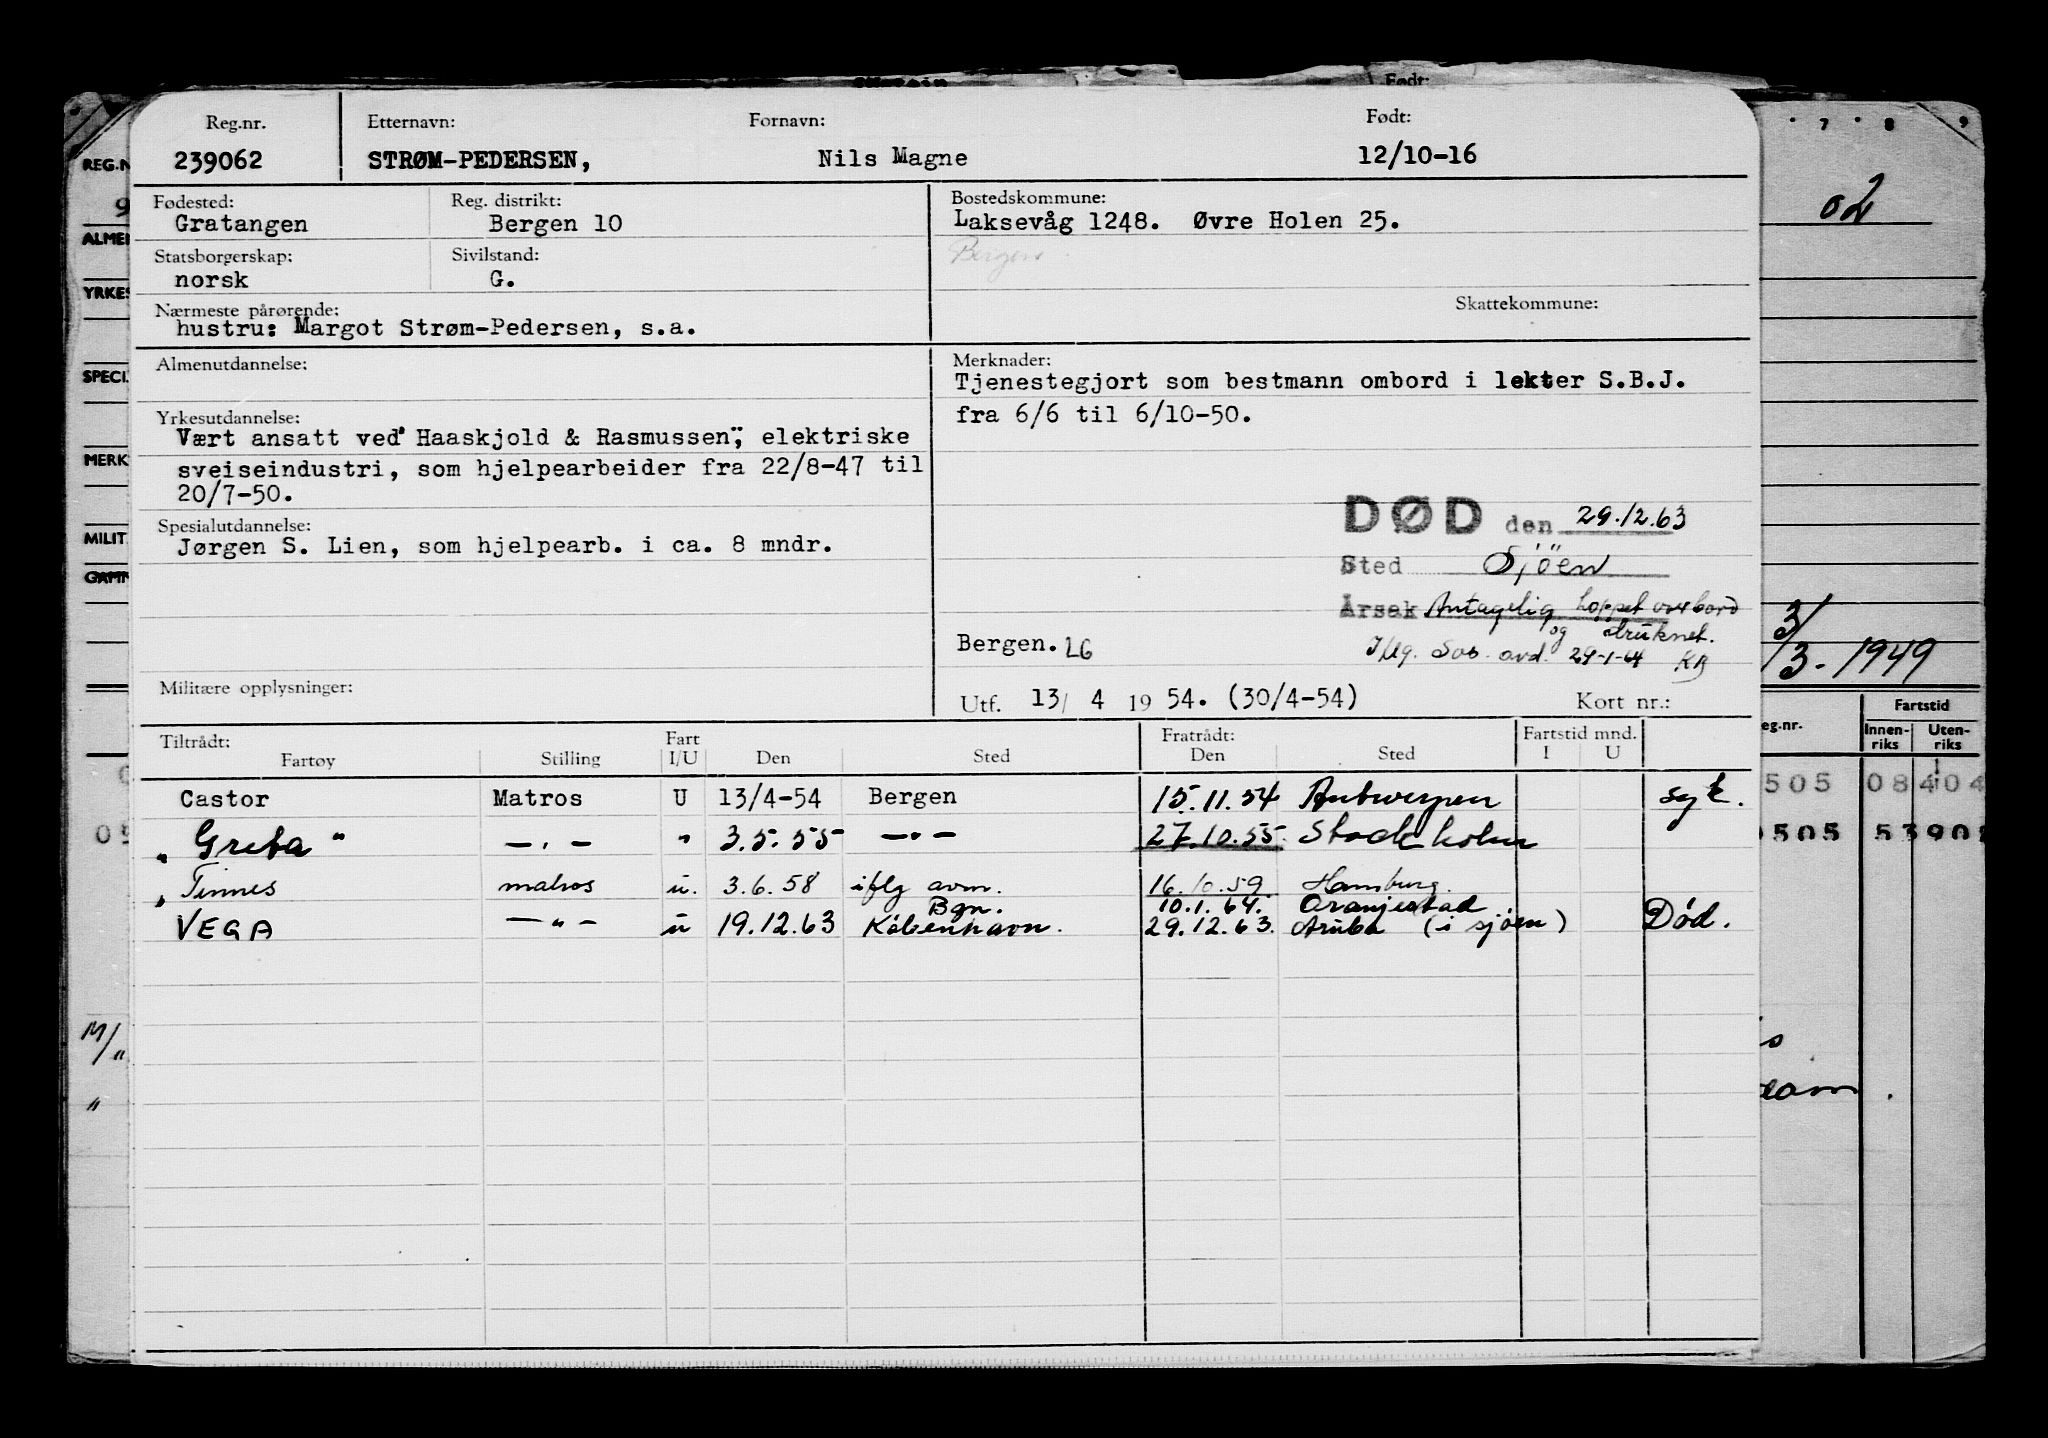 Født:
Reg.nr. Etternavn: Fornavn: Født:
239062 STRØM-PEDERSEN, Nils Magne 12/10-16
Fødested: Reg. distrikt: Bostedskommune:
Gratangen Bergen 10 Laksevåg 1248. Øvre Holen 25.
Bergen
Statsborgerskap: Sivilstand:
norsk G.
Nærmeste pårørende: Skattekommune:
hustru: Margot Strøm-Pedersen, s.a.
Almenutdannelse: Merknader:
Tjenestegjort som bestmann ombord i lekter S.B.J.
fra 6/6 til 6/10-50.
Yrkesutdannelse:
Vært ansatt ved" Haaskjold & Rasmussen", elektriske
sveiseindustri, som hjelpearbeider fra 22/8-47 til
20/7-50.
Spesialutdannelse:
Jørgen S. Lien, som hjelpearb. i ca. 8 mndr.
DØD den 29.12.63
Sted Sjöen
Årsak Antagelig hoppet over bord
og druknet.
Bergen. LG
Iflg. Sos. avd. 29-1-64 KB
Militære opplysninger:
Utf. 13/ 4 19 54. (30/4-54) Kort nr.:
Tiltrådt: Fart Fratrådt: Fartstid mnd.
Fartøy Stilling I/U Den Sted Den Sted I U
Castor Matros U 13/4-54 Bergen 15.11.54 Antwerpen syk.
„ Greta " — . — " 3.5.55 —"— 27.10.55 Stockholm
„ Tinnes matros u. 3.6.58 iflg avm. Bgn. 16.10.59 Hamburg.
10.1.64. Oranjestad
VEGA — " — u 19.12.63 København. 29.12.63. Aruba (i sjøen) Død.
REG.N
9
ALMEI
YRKES
SPECI.
MERK
MILIT.
GAMM
05
M/
"
"
7 8 9
02
3/
/3.-1949
eg.nr. Fartstid
Innen-riks Uten-riks
505 08 404
0505 53908
eam .